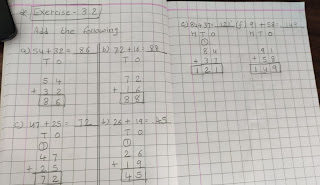 * Exercise - 3.2
Add the following
a) 54 + 32 = 86
T O
5 4
+ 3 2
8 6
b) 72 + 16 = 88
T O
7 2
+ 1 6
8 8
c) 47 + 25 = 72
T O
①
4 7
+ 2 5
7 2
d) 26 + 19 = 45
T O
①
2 6
+ 1 9
4 5
e) 84 + 37 = 121
H T O
①
8 4
+ 3 7
1 2 1
f) 91 + 58 =
H T O
9 1
+ 5 8
1 4 9